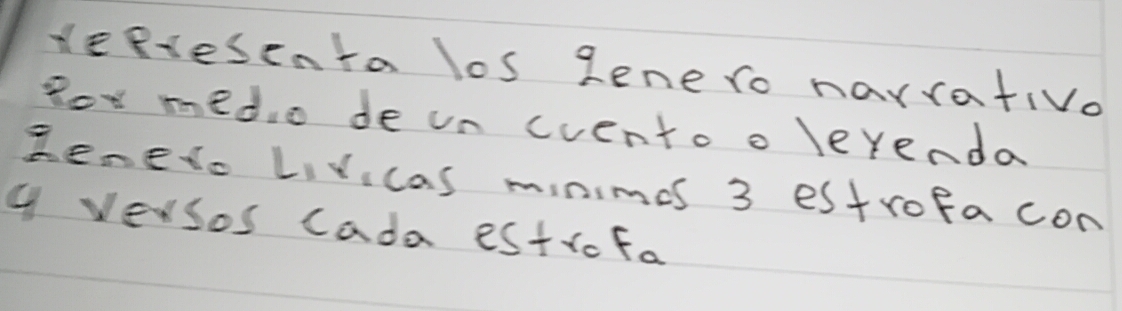 representa los genero narrativo
Por medio de un cuento o leyenda
genero Liricas minimos 3 estrofa con
4 versos cada estrofa